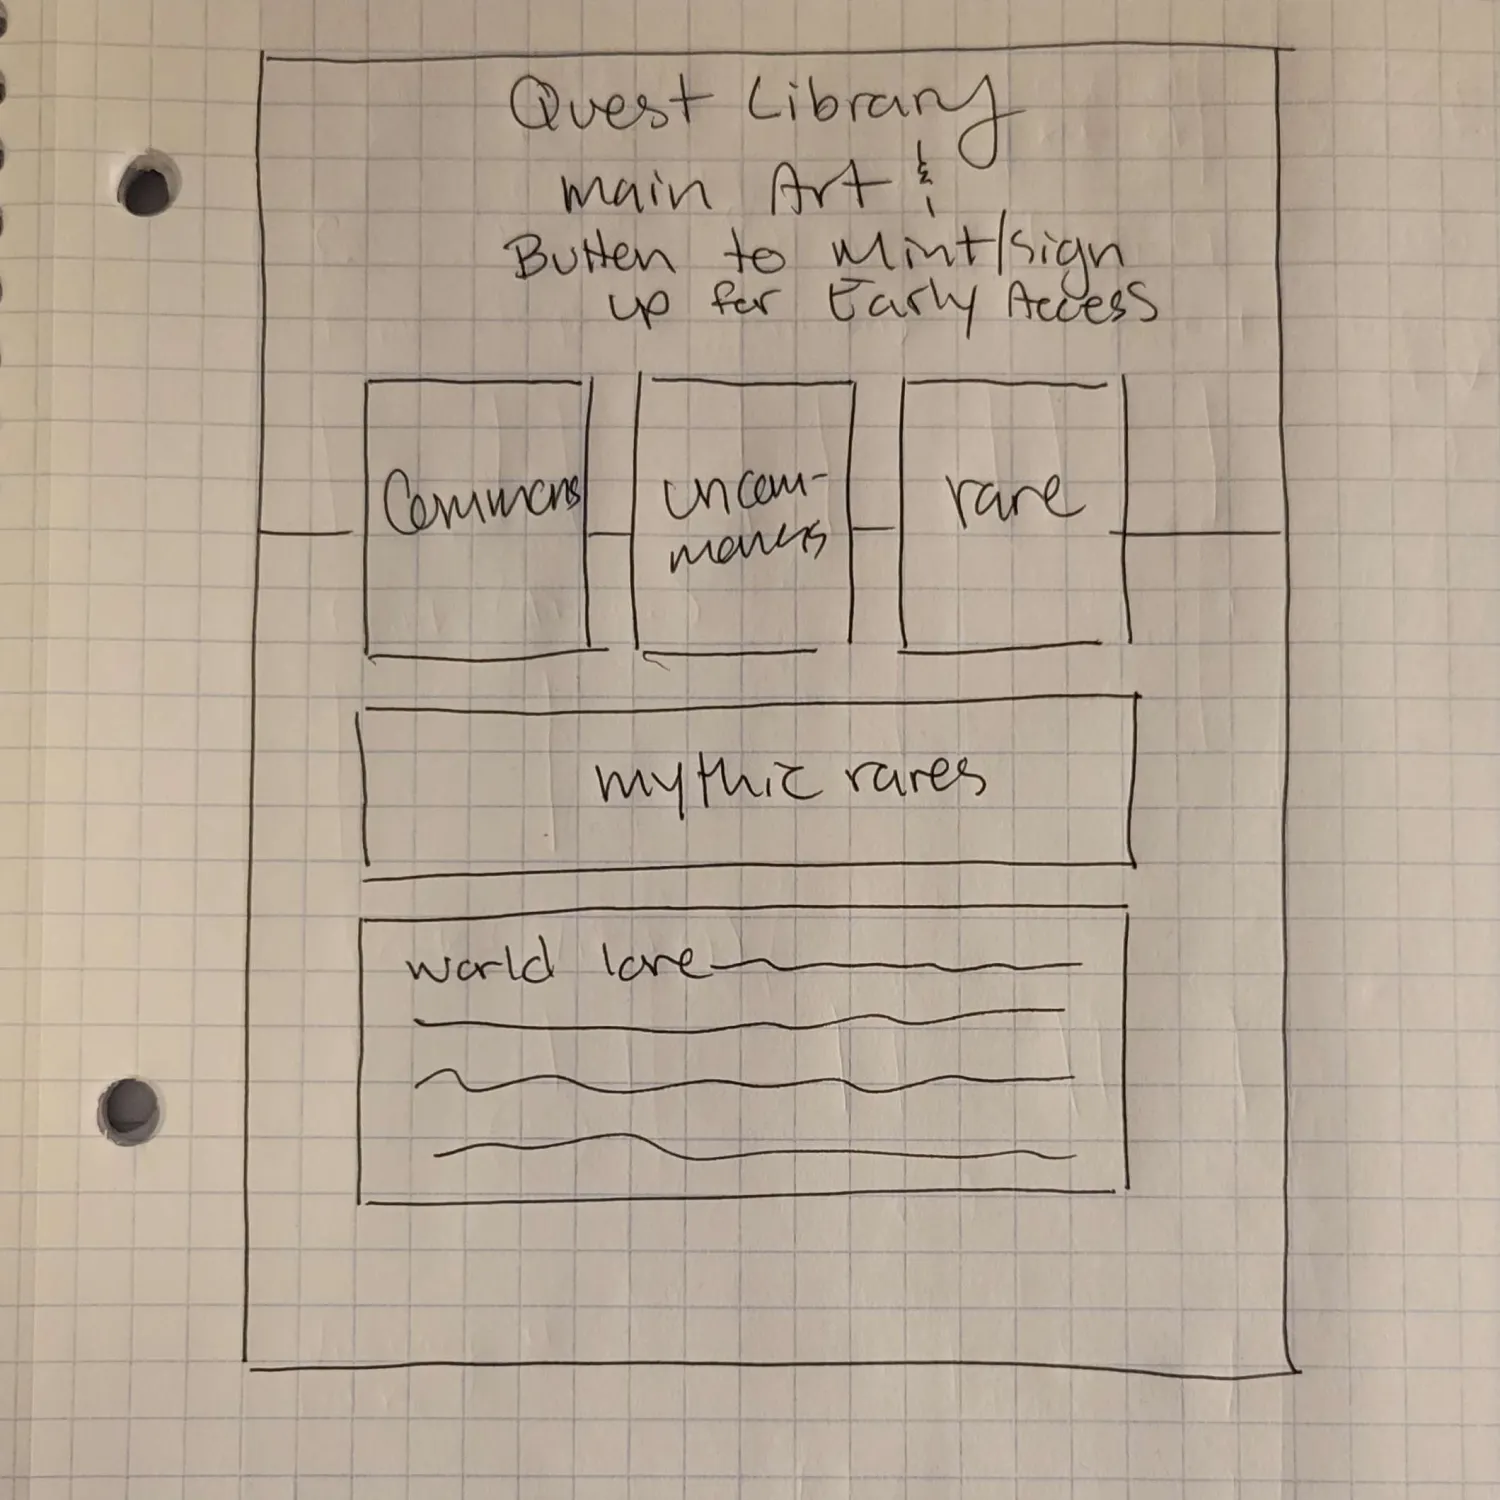 Quest Library
main Art &
Button to Mint/sign
up for Early Access
Commons
uncom-
mones
rare
mythic rares
world lore